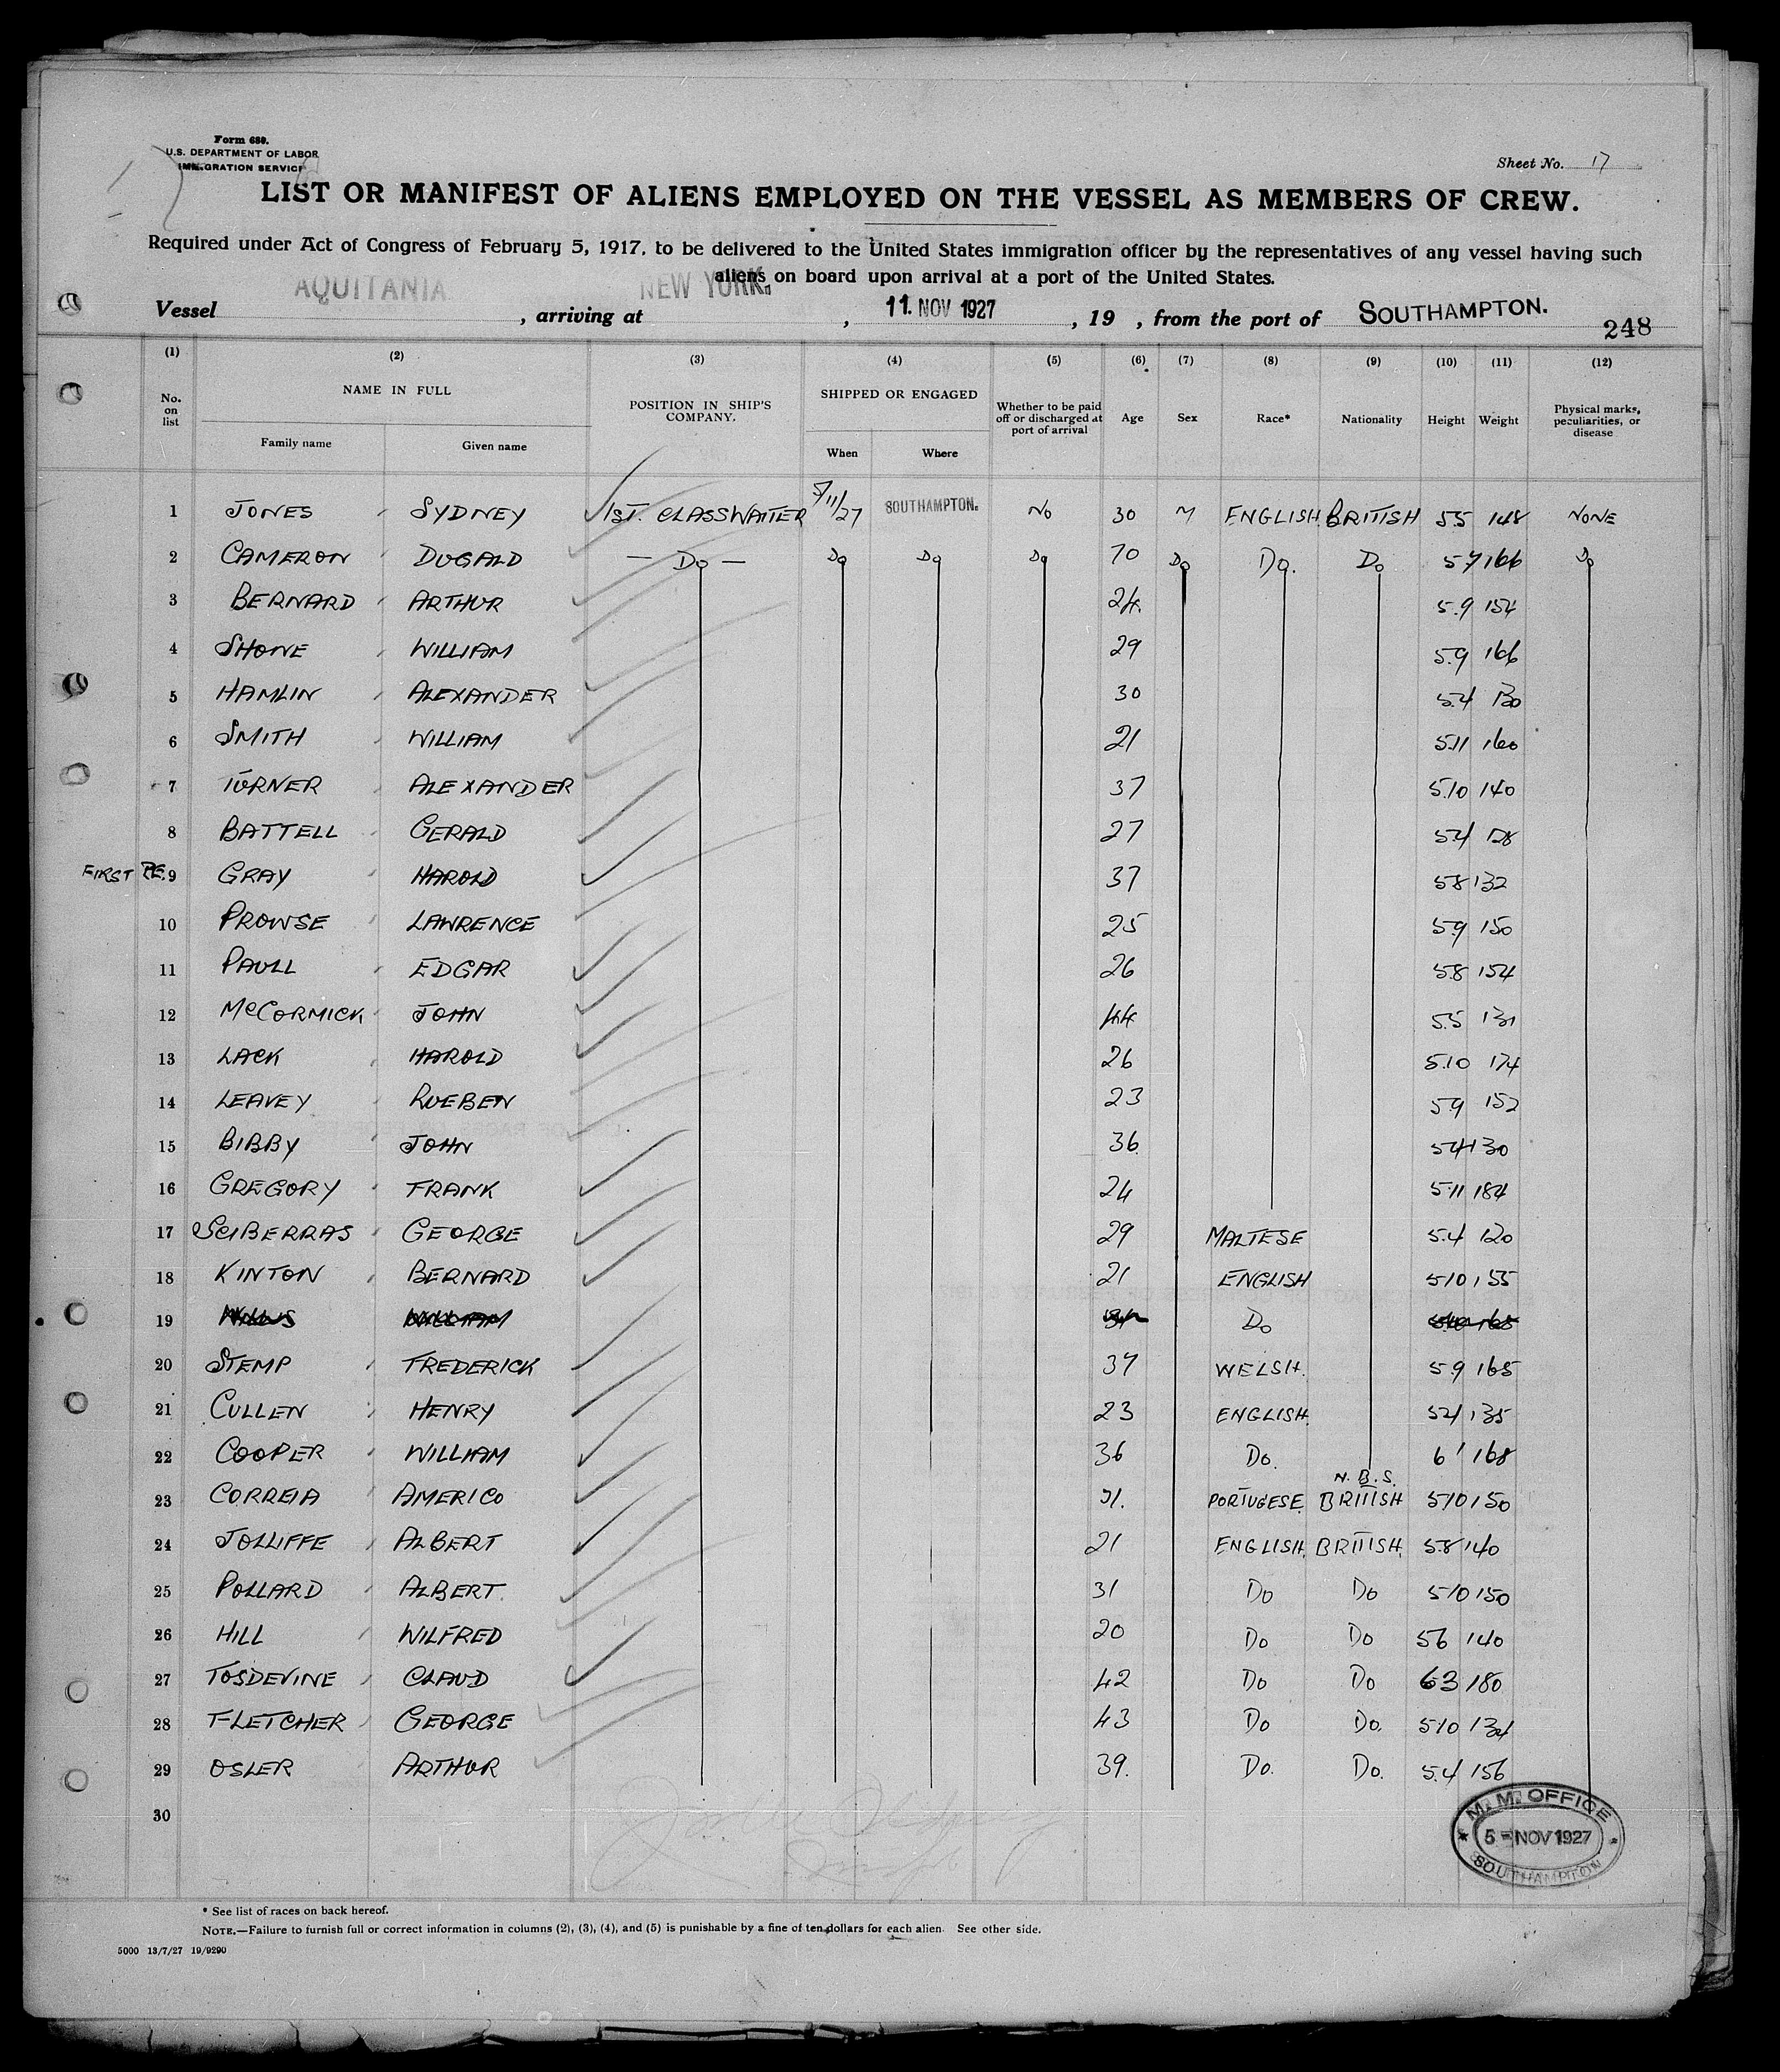 Form 680.
U.S. DEPARTMENT OF LABOR
IMMIGRATION SERVICE
Sheet No. 17
LIST OR MANIFEST OF ALIENS EMPLOYED ON THE VESSEL AS MEMBERS OF CREW.
Required under Act of Congress of February 5, 1917, to be delivered to the United States immigration officer by the representatives of any vessel having such
aliens on board upon arrival at a port of the United States.
Vessel AQUITANIA , arriving at NEW YORK. , 11. NOV 1927 , 19 , from the port of SOUTHAMPTON.
248
(1) (2) (3) (4) (5) (6) (7) (8) (9) (10) (11) (12)
No. on list NAME IN FULL Family name Given name POSITION IN SHIP'S COMPANY. SHIPPED OR ENGAGED When Where Whether to be paid off or discharged at port of arrival Age Sex Race* Nationality Height Weight Physical marks, peculiarities, or disease
1 JONES SYDNEY 1ST. CLASS WAITER 5/11/27 SOUTHAMPTON. NO 30 M ENGLISH BRITISH 5.5 148 NONE
2 CAMERON DUGALD — DO — DO DO DO 70 DO DO. DO 5.7 166 DO
3 BERNARD ARTHUR 24. 5.9 154
4 SHONE WILLIAM 29 5.9 166
5 HAMLIN ALEXANDER 30 5.4 130
6 SMITH WILLIAM 21 5.11 160
7 TURNER ALEXANDER 37 5.10 140
8 BATTELL GERALD 27 5.4 128
FIRST 9 GRAY HAROLD 37 5.8 132
10 PROWSE LAWRENCE 25 5.9 150
11 PAULL EDGAR 26 5.8 154
12 McCORMICK JOHN 44 5.5 131
13 LACK HAROLD 26 5.10 174
14 LEAVEY RUEBEN 23 5.9 152
15 BIBBY JOHN 36 5.4 130
16 GREGORY FRANK 24 5.11 184
17 SCIBERRAS GEORGE 29 MALTESE 5.4 120
18 KINTON BERNARD 21 ENGLISH 5.10 155
19 WILLIAM DO
20 STEMP FREDERICK 37 WELSH. 5.9 165
21 CULLEN HENRY 23 ENGLISH. 5.4 135
22 COOPER WILLIAM 36 DO. 6' 168
N.B.S.
23 CORREIA AMERICO 31. PORTUGESE BRITISH 5.10 150
24 JOLLIFFE ALBERT 21 ENGLISH. BRITISH. 5.8 140
25 POLLARD ALBERT. 31 DO DO 5.10 150
26 HILL WILFRED 20 DO DO 5.6 140
27 TOSDEVINE CLAUD 42 DO DO 6.3 180
28 FLETCHER GEORGE 43 DO DO. 5.10 134
29 OSLER ARTHUR 39. DO. DO. 5.4 156
30
M.M. OFFICE
5 - NOV 1927
SOUTHAMPTON
* See list of races on back hereof.
NOTE.—Failure to furnish full or correct information in columns (2), (3), (4), and (5) is punishable by a fine of ten dollars for each alien. See other side.
5000 13/7/27 19/9290